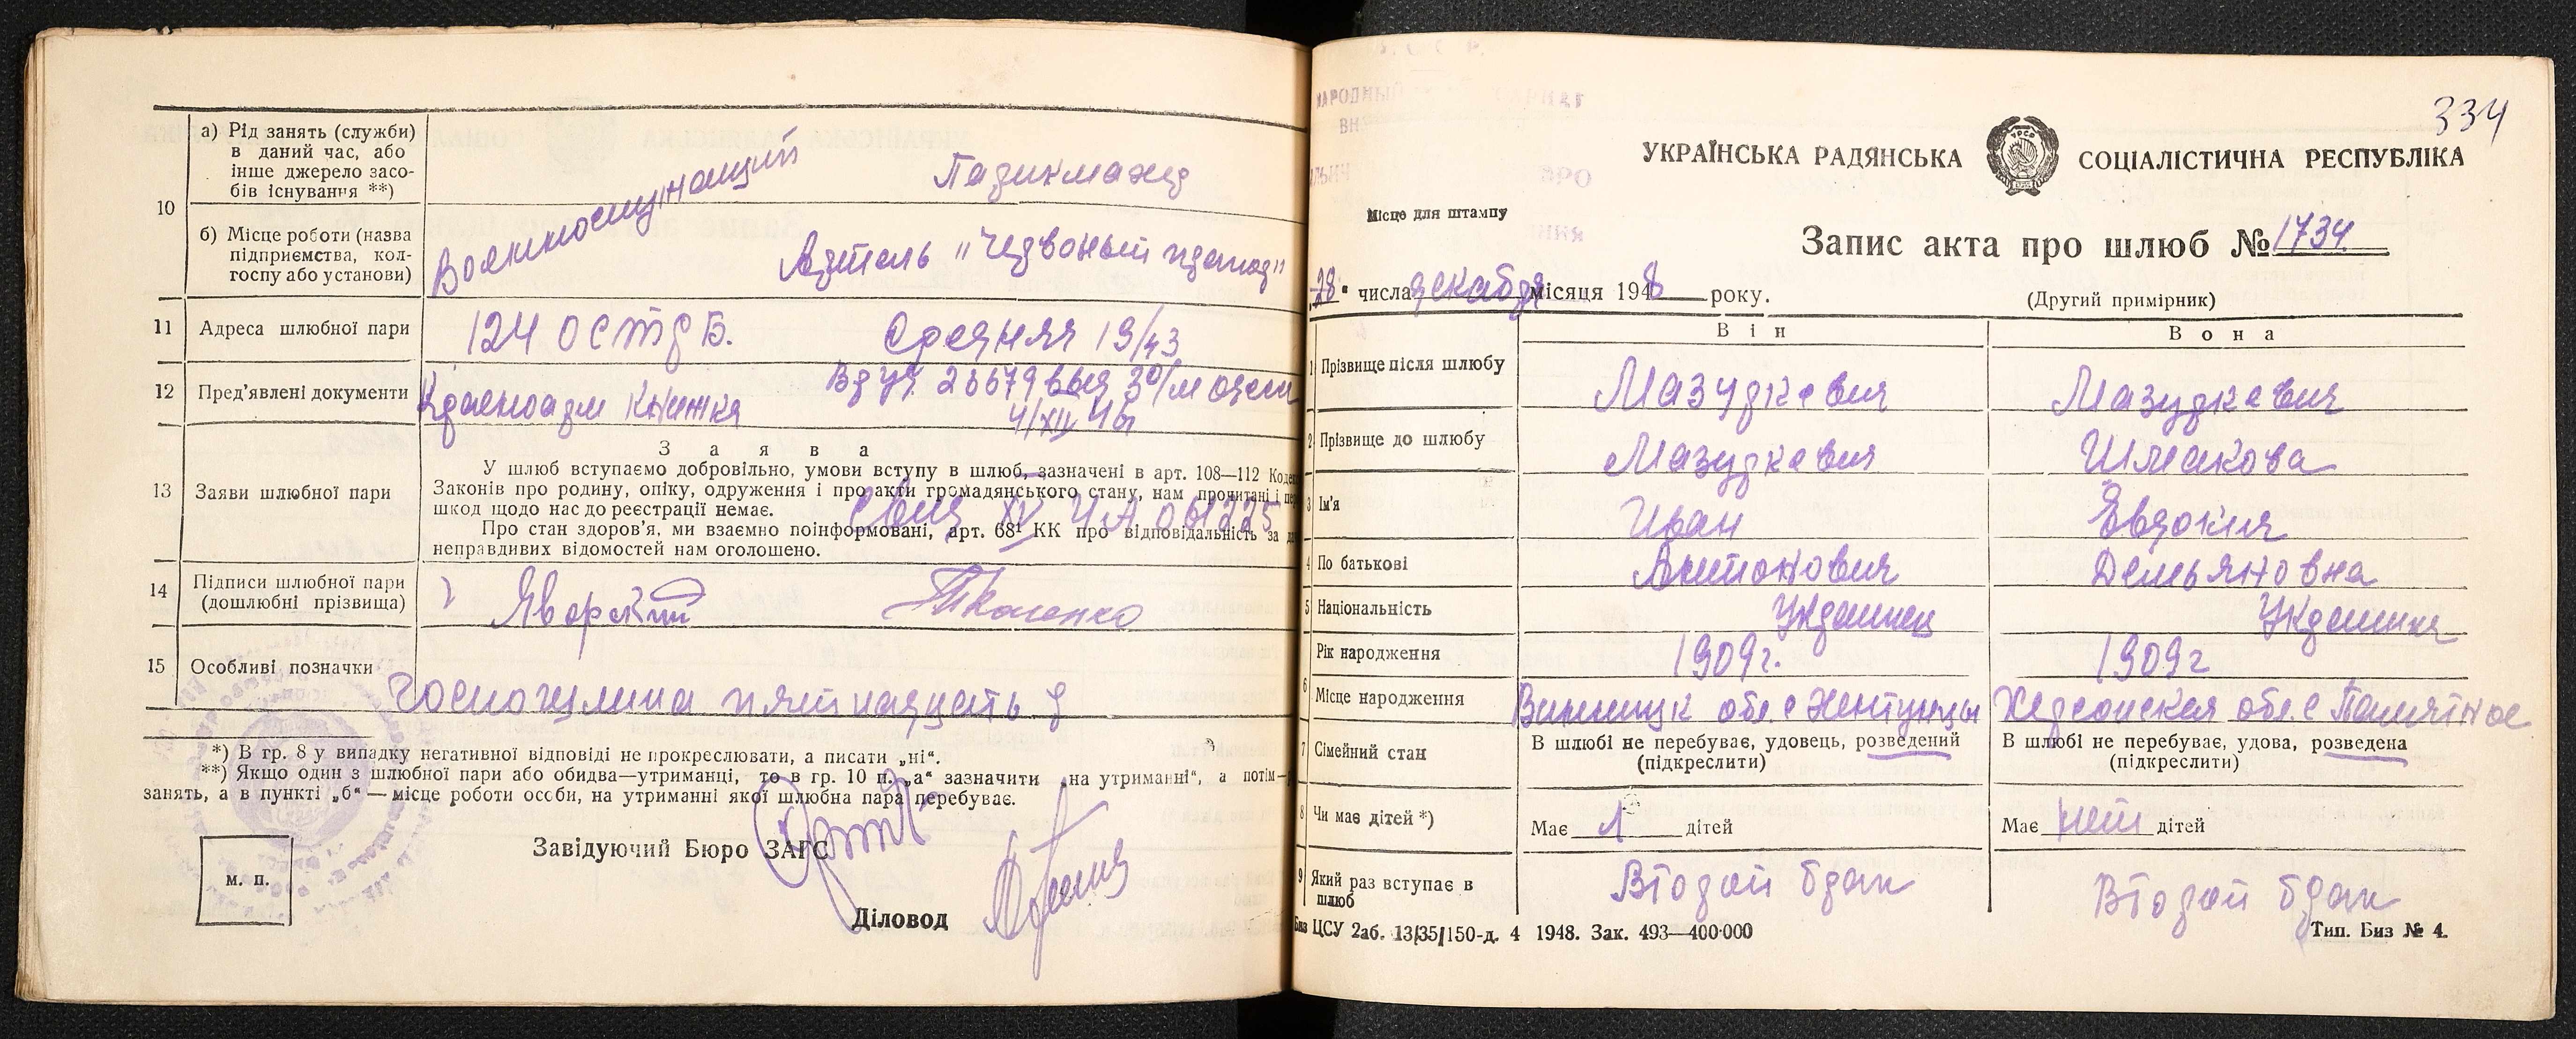 10
а) Рід занять (служби)
в даний час, або
інше джерело засо-
бів існування **)
Военнослужащий
Парикмахер
б) Місце роботи (назва
підприємства, кол-
госпу або установи)
Артель "Червоный прапор"
11
Адреса шлюбної пари
124 ОСТРБ.
Средняя 19/43
12
Пред'явлені документи
Красноарм книжка
4/XII
З а я в а
13
Заяви шлюбної пари
У шлюб вступаємо добровільно, умови вступу в шлюб, зазначені в арт. 108—112
Законів про родину, опіку, одруження і про акти громадянського стану, нам прочитані і
шкод щодо нас до реєстрації немає.
061225
Про стан здоров'я, ми взаємно поінформовані, арт. 68¹ КК про відповідальність за
неправдивих відомостей нам оголошено.
14
Підписи шлюбної пари
(дошлюбні прізвища)
Яворский
15
Особливі позначки
Госпошлина пятнадцать р
*) В гр. 8 у випадку негативної відповіді не прокреслювати, а писати „ні“.
**) Якщо один з шлюбної пари або обидва—утриманці, то в гр. 10 п. „а“ зазначити „на утриманні“, а потім—
занять, а в пункті „б“ — місце роботи особи, на утриманні якої шлюбна пара перебуває.
Завідуючий Бюро ЗАГС
м. п.
Діловод
334
УКРАЇНСЬКА РАДЯНСЬКА СОЦІАЛІСТИЧНА РЕСПУБЛІКА
Місце для штампу
Запис акта про шлюб № 1734
"28" числа декабря місяця 1948 року.
(Другий примірник)
В і н
В о н а
1
Прізвище після шлюбу
Мазуркевич
Мазуркевич
2
Прізвище до шлюбу
Мазуркевич
Шмакова
3
Ім'я
Иван
Евдокия
4
По батькові
Антонович
Демьяновна
5
Національність
Украинец
Украинка
6
Рік народження
1909 г.
1909 г
Місце народження
Винницк обл. с
Херсонская обл. с Памятное
7
Сімейний стан
В шлюбі не перебуває, удовець, розведений
(підкреслити)
В шлюбі не перебуває, удова, розведена
(підкреслити)
8
Чи має дітей *)
Має 1 дітей
Має нет дітей
9
Який раз вступає в
шлюб
Второй брак
Второй брак
Биз ЦСУ 2аб. 13/35/150-д. 4 1948. Зак. 493—400·000
Тип. Биз № 4.